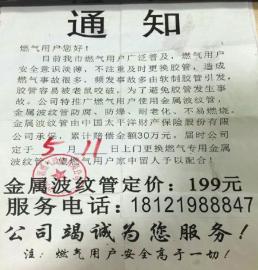 通知
燃气用户您好！
目前我市燃气用户广泛普及，燃气用户
安全意识淡薄，不注重及时更换胶管，造成
燃气事故很多，频发事故多由软制胶管引发，
胶管容易被老鼠咬破，为了避免胶管发生事
故，公司特推广燃气用户使用金属波纹管，
金属波纹管防腐、防爆、耐老化、不易燃烧。
金属波纹管由中国太平洋财产保险股份有限
公司承保，累计赔偿金额30万元，届时公司
定于5月11日上门更换燃气专用金属
波纹管，燃气用户家中留人予以配合！
金属波纹管定价：199元
服务电话：18121988847
公司竭诚为您服务！
注：燃气用户安全高于一切！